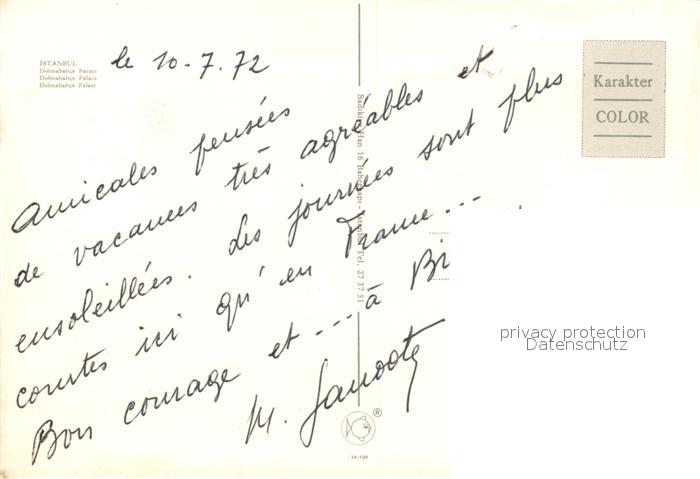 İSTANBUL
Dolmabahçe Sarayı
Dolmabahçe Palace
Dolmabahçe Palast
le 10-7.72
Amicales pensées
de vacances très agréables et
ensoleillées. Les journées sont plus
courtes ici qu'en France...
Bon courage et ... à
M.
Karakter
COLOR
Han 16 Tel. 27 37 51
®
34/109
privacy protection
Datenschutz